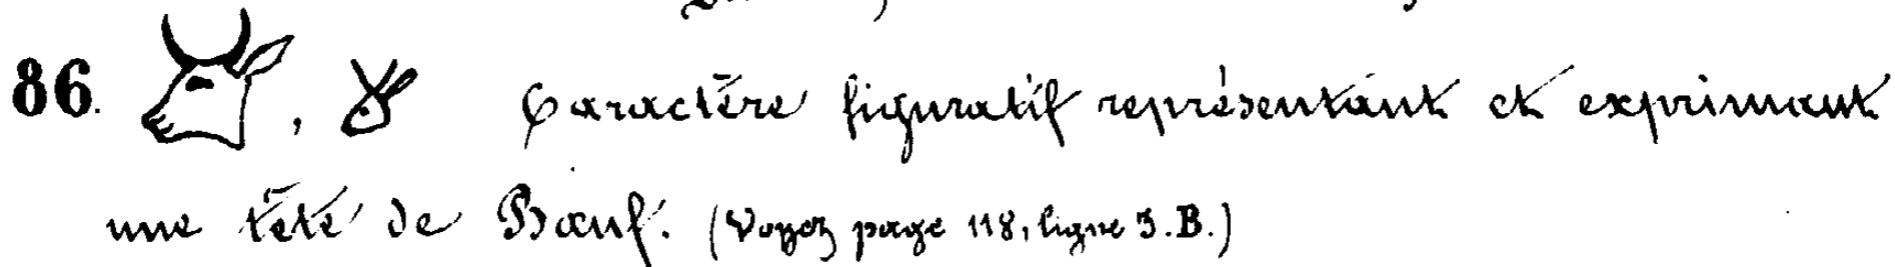 86. , Caractère figuratif représentant et exprimant
une tête de Bœuf. (Voyez page 118, ligne 3. B.)